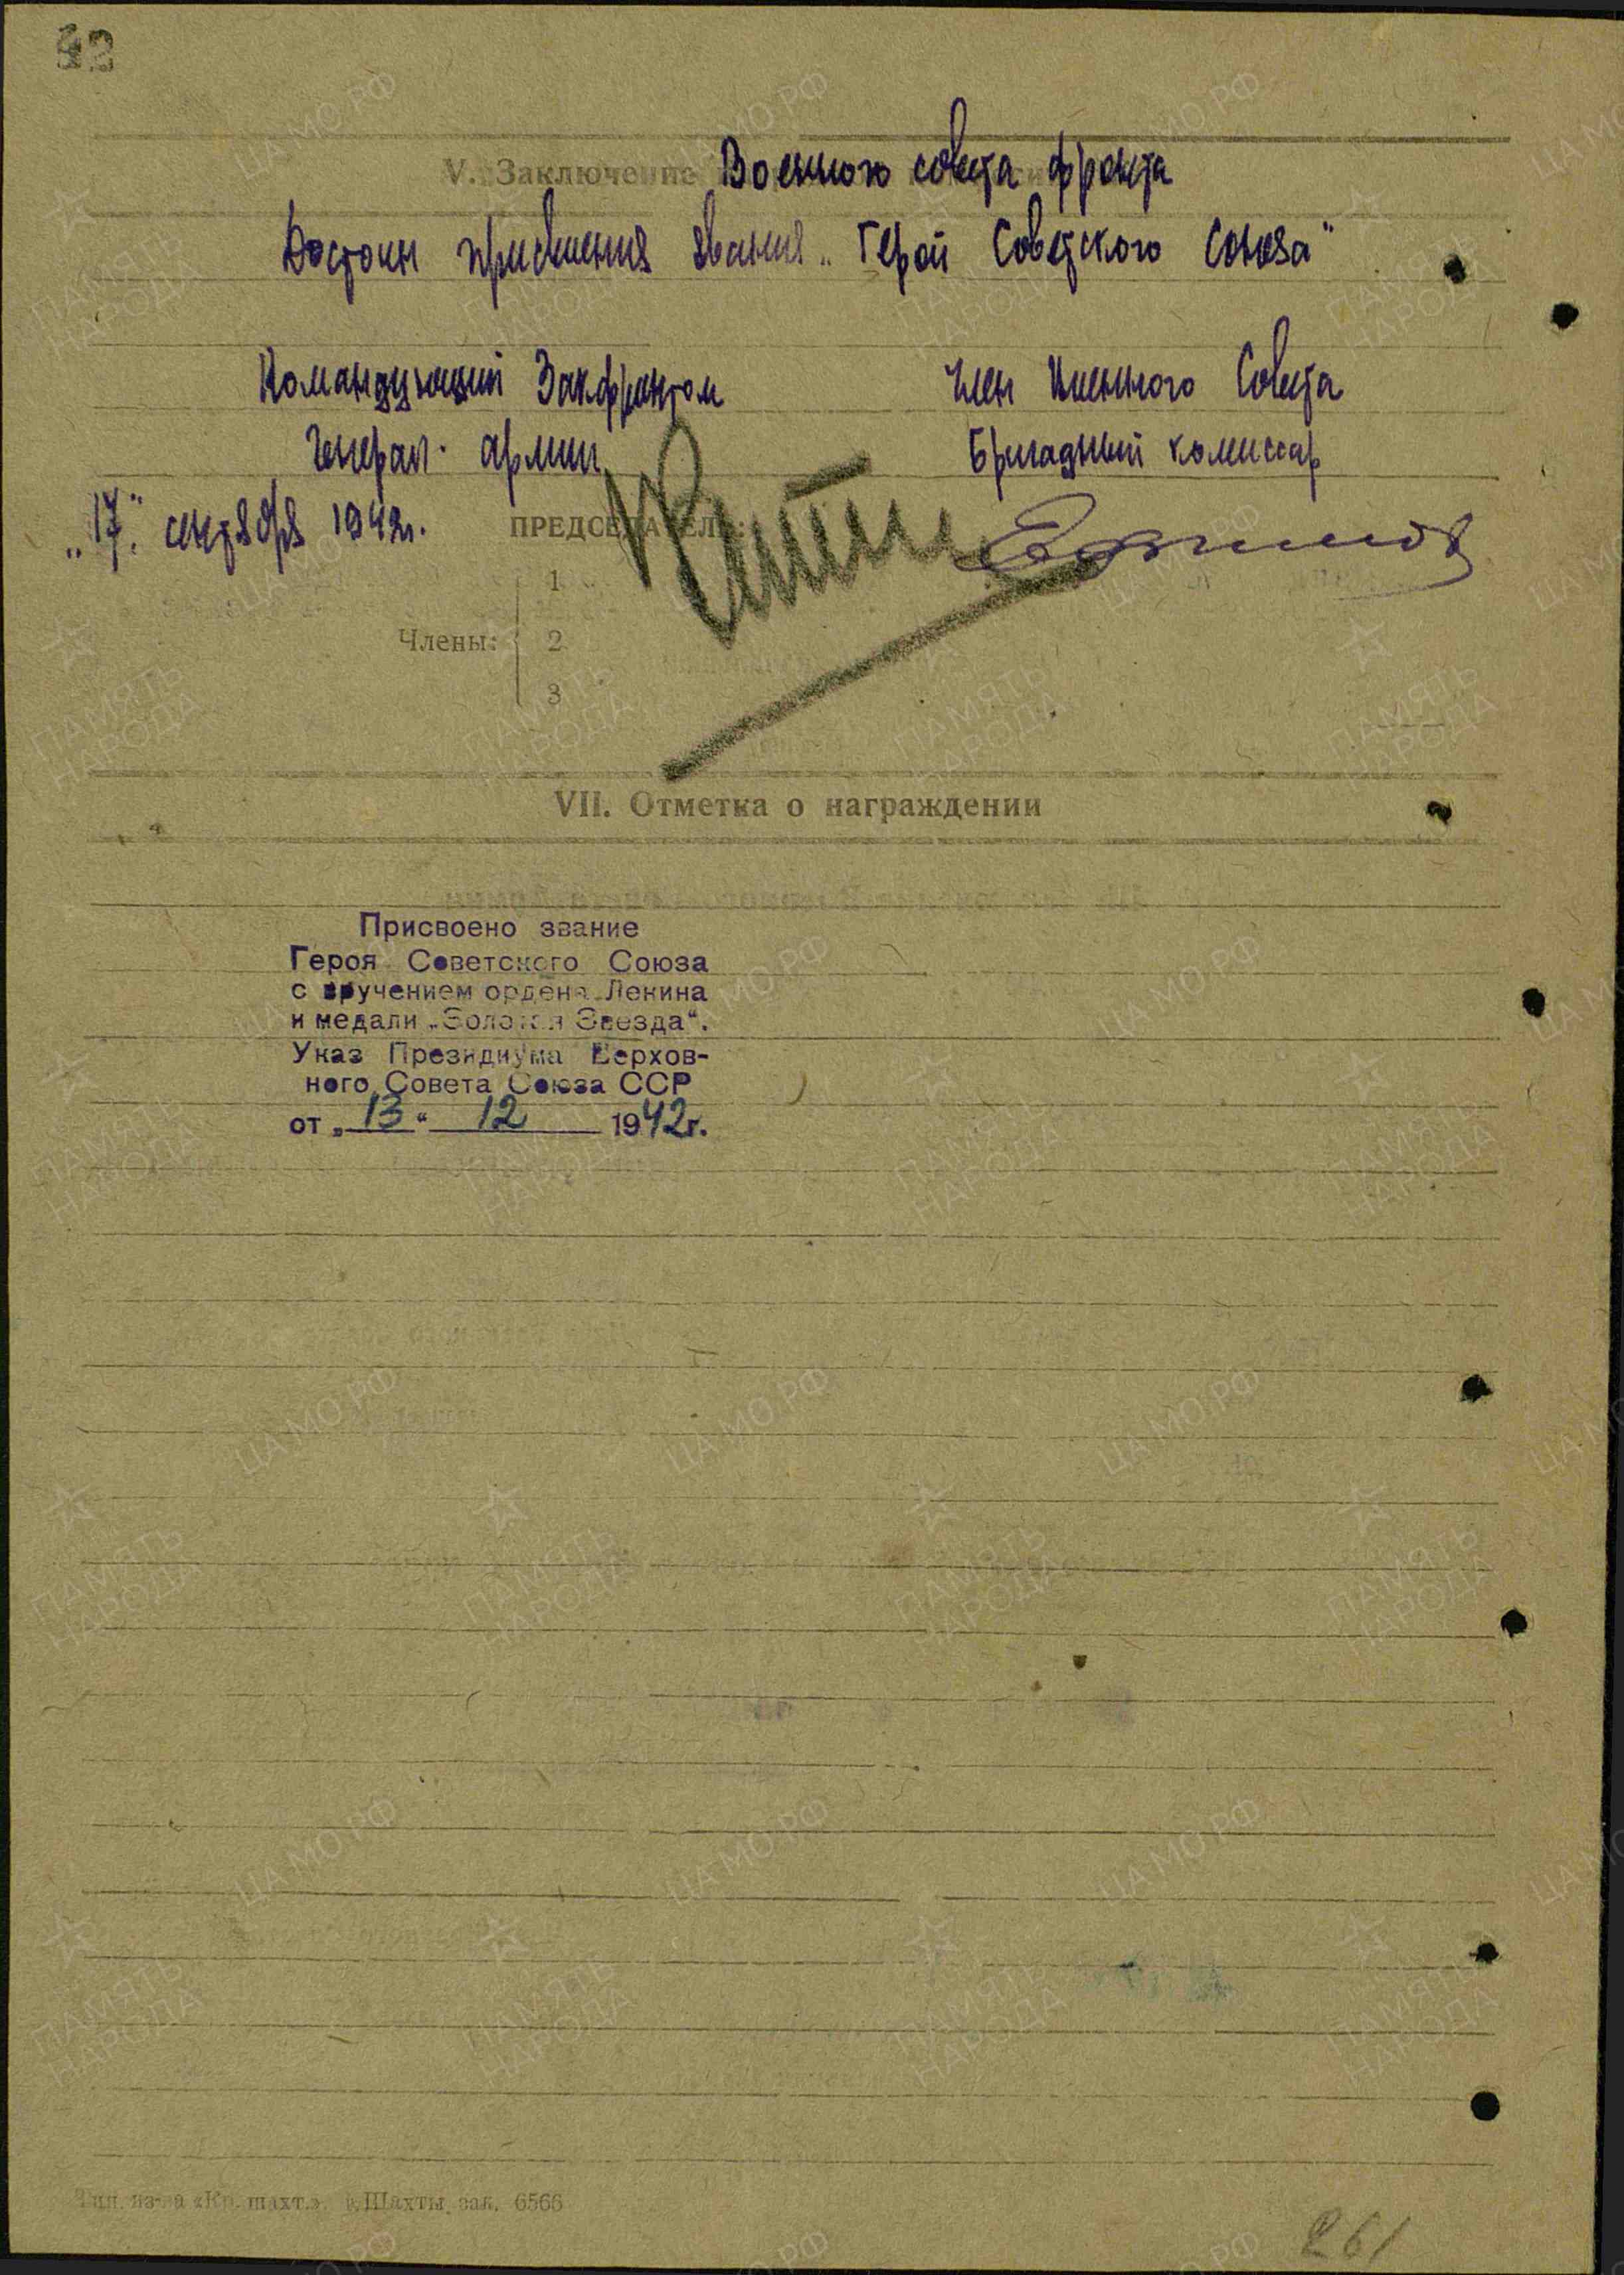 V. Заключение Военного совета фронта
Достоин присвоения звания „Герой Советского Союза"
Командующий Закфронтом
Член Военного Совета
Генерал армии
Бригадный комиссар
„17" сентября 1942г.
ПРЕДСЕДАТЕЛЬ:
Члены:
1
2
3
VII. Отметка о награждении
Присвоено звание
Героя Советского Союза
с вручением ордена Ленина
и медали „Золотая Звезда“.
Указ Президиума Верхов-
ного Совета Союза ССР
от „13“ 12 1942г.
Тип. из-ва «Кр. шахт.». г. Шахты зак. 6566
261